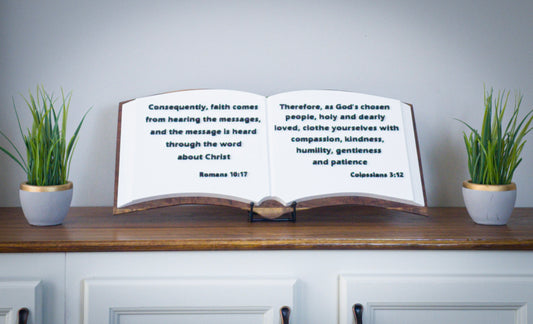 Consequently, faith comes
from hearing the messages,
and the message is heard
through the word
about Christ
Romans 10:17
Therefore, as God's chosen
people, holy and dearly
loved, clothe yourselves with
compassion, kindness,
humility, gentleness
and patience
Colpssians 3:12